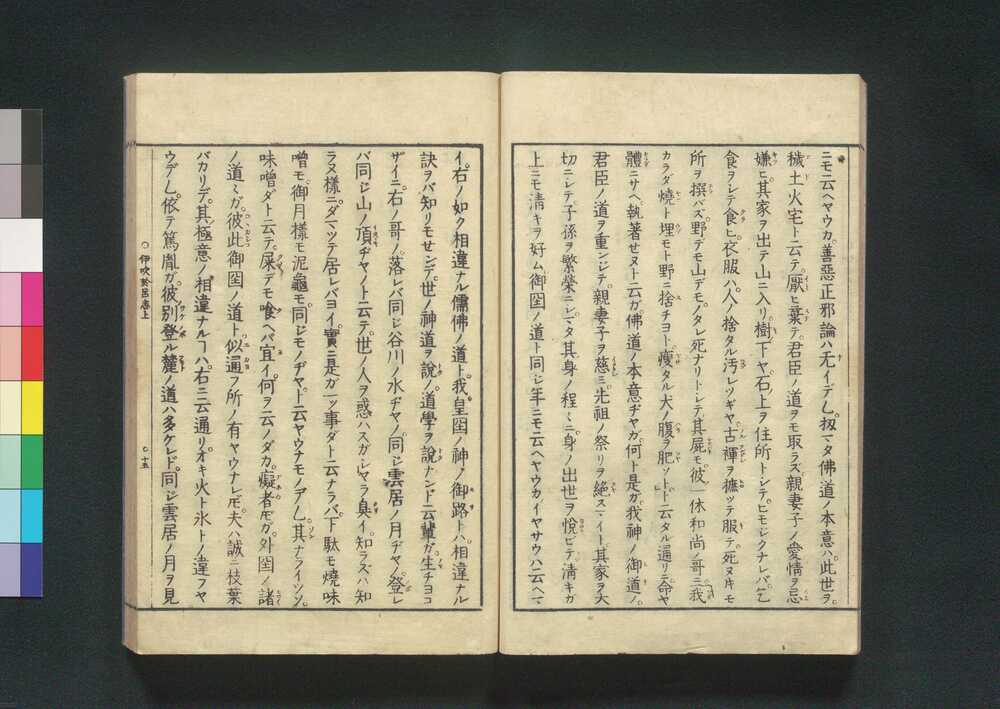 ニモ云ヘヤウカ善惡正邪論ハ无イデム扨マタ佛道ノ本意ハ此世ヲ
穢土火宅ト云テ厭ヒ棄テ君臣ノ道ヲモ取ラズ親妻子ノ愛情ヲ忌
嫌ヒ其家ヲ出テ山ニ入リ樹下ヤ石上ヲ住所トシテヒモジクナレバ乞
食ヲシテ食ヒ衣服ハ人ノ捨タル汚レツギヤ古褌ヲ摭ツテ服テ死ヌキモ
所ヲ撰バズ野デモ山デモノタレ死ナリトシテ其屍モ彼一休和尚ノ哥ニ我
カラダ燒ト埋モト野ニ捨チヨト瘦タル犬ノ腹ヲ肥ソトト云タル通リニ命ヤ
體ニサヘ執著セヌト云ガ佛道ノ本意ヂヤガ何ト是ガ我神ノ御道ノ
君臣ノ道ヲ重ンジテ親妻子ヲ慈ミ先祖ノ祭リヲ絶スマイト其家ヲ大
切ニシテ子孫ヲ繁榮ニシマタ其身ノ程ミニ身ノ出世ヲ悅ビテ淸キガ
上ニモ淸キヲ好ム御囶ノ道ト同ジ年ニモ云ヘヤウカイヤサウハ云ヘマ
イ右ノ如ク相違ナル儒佛ノ道ト我皇囶ノ神ノ御路トハ相違ナル
訣ヲバ知リモセンデ世ノ神道ヲ說ノ道學ヲ說ナンドニ云輩ガ生チヨコ
ザイニ右ノ哥ノ落レバ同ジ谷川ノ水ヂヤノ同ジ雲居ノ月ヂヤノ登レ
バ同ジ山ノ頂ヂヤノト云テ世ノ人ヲ惑ハスガシヤラ臭イ知ラズハ知
ラヌ樣ニダマツテ居レバヨイ實ニ是ガ一ツ事ダト云ナラバ下駄モ燒味
噌モ御月樣モ泥龜モ同ジモノヂヤト云ヤウナモノデム其ナライツソ
味噌ダト云テ屎デモ喰ヘバ宜イ何ヲ云ノダカ癡者𪜈ガ外囶ノ諸
ノ道ミガ彼此御囶ノ道ト似通フ所ノ有ヤウナレ𪜈夫ハ誠ニ枝葉
バカリデ其極意ノ相違ナルヿハ右ニ云通リオキ火ト氷トノ違フヤ
ウデム依テ篤胤ガ彼別登ル麓ノ道ハ多ケレド同ジ雲居ノ月ヲ見
伊吹於呂志上
十五